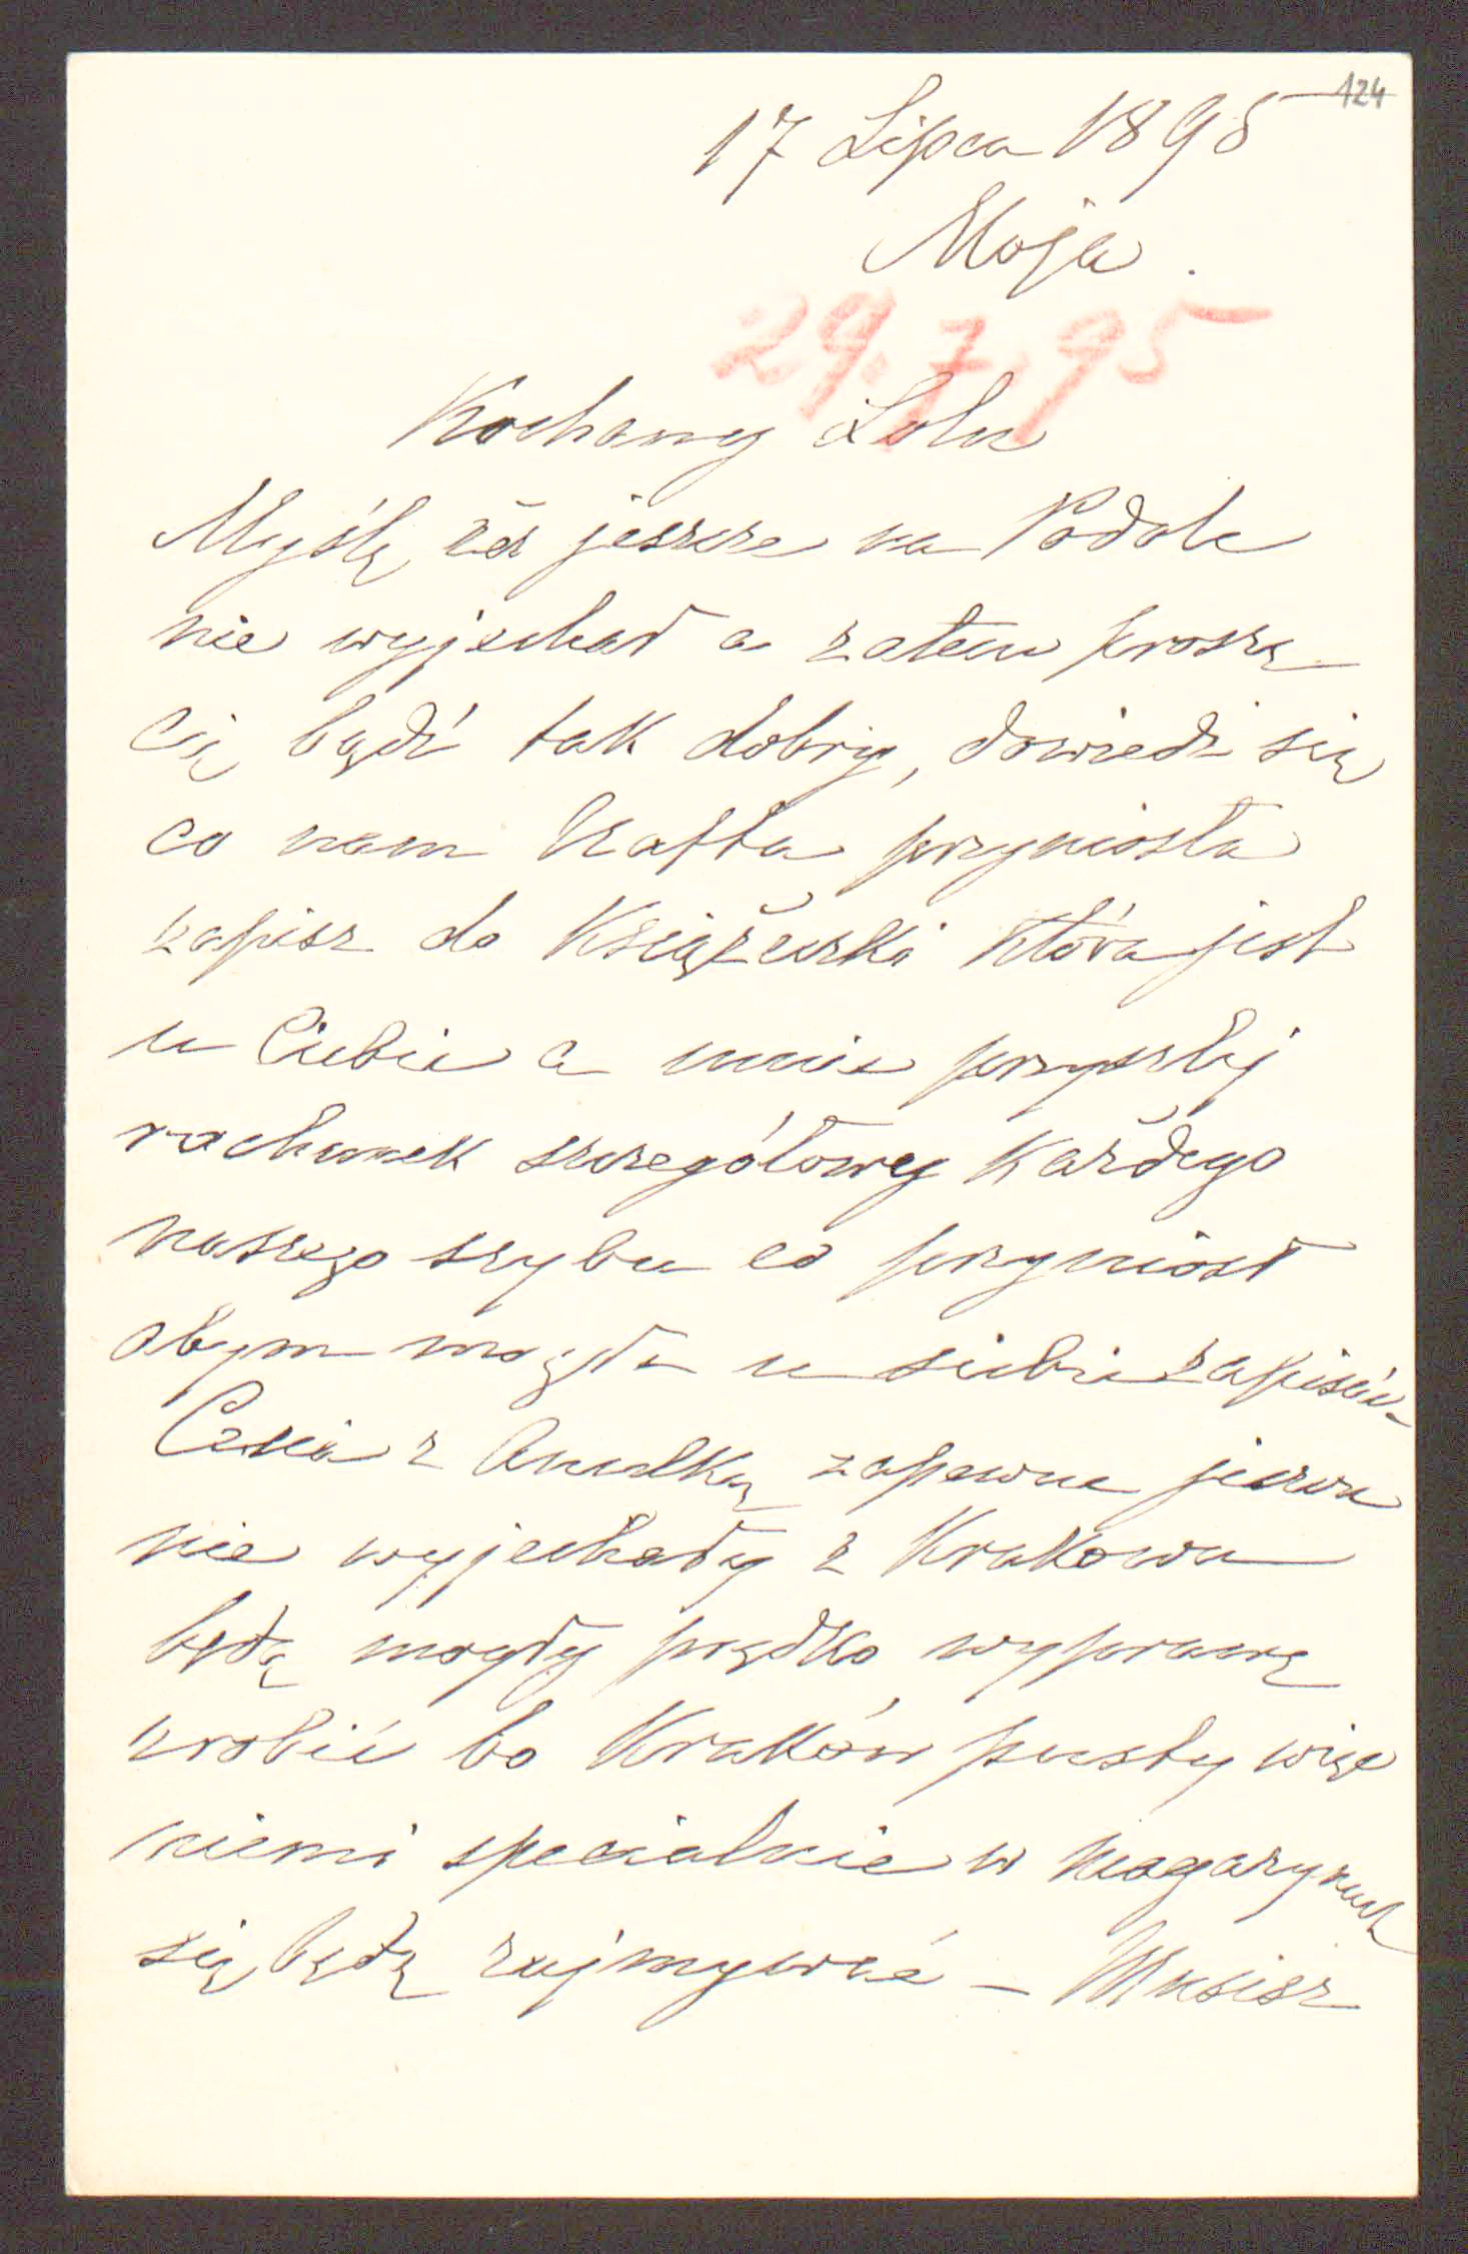 124
17 Lipca 1895
Moja.
29.7.95
Kochany Lolu
Myślę żeś jeszcze na Podole
nie wyjechał a zatem proszę
Cię bądź tak dobry, dowiedz się
co nam Nafta przyniosła
zapisz do Książeczki która jest
u Ciebie a mnie przyszlij
rachunek szczegółowy każdego
naszego szybu co przyniosł
abym mogła u siebie zapisać -
z Anulką zapewne jeszcze
nie wyjechały z Krakowa
będą mogły prędko wyprawę
zrobić bo Kraków pusty więc
niemi specialnie w magazynach
się będą zajmywać - Musisz